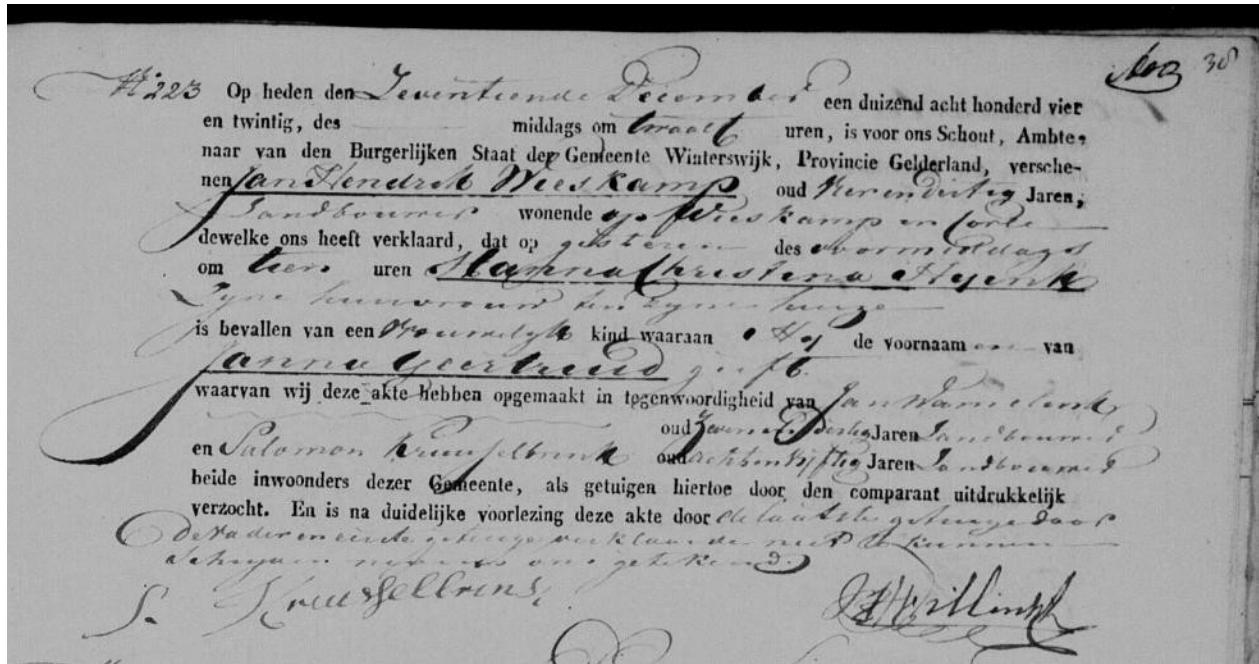 38
N° 223 Op heden den Zeventiende December een duizend acht honderd vier
en twintig, des middags om twaalf uren, is voor ons Schout, Ambte-
naar van den Burgerlijken Staat der Gemeente Winterswijk, Provincie Gelderland, versche-
nen Jan Hendrik Wieskamp oud Jaren,
Landbouwer wonende op Wieskamp in Corle
dewelke ons heeft verklaard, dat op gisteren des voormiddags
om tien uren Hanna Christina
Zyne huisvrouw ten zynen huize
is bevallen van een Vrouwelyk kind waaraan Hy de voornaam en van
Janna Geertruid geeft.
waarvan wij deze akte hebben opgemaakt in tegenwoordigheid van Jan
oud Zeven en Dertig Jaren Landbouwer
en Salomon Kruisselbrink oud acht en vyftig Jaren Landbouwer
beide inwoonders dezer Gemeente, als getuigen hiertoe door den comparant uitdrukkelijk
verzocht. En is na duidelijke voorlezing deze akte door de laatste getuige door
de Vader en eerste getuige verklaarde niet te kunnen
Schryven nevens ons getekend.
S. Kruisselbrink
Willink